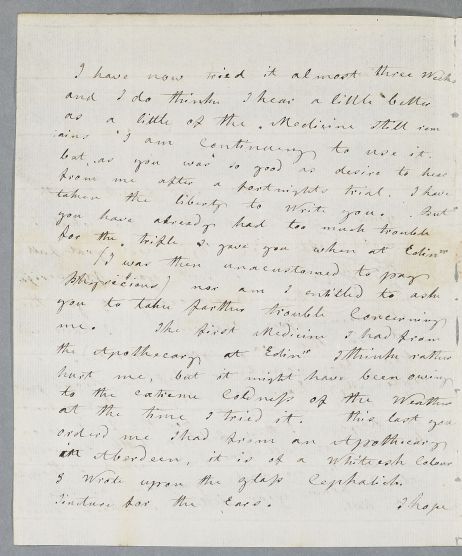 I have now tried it almost three Weeks
and I do thinke I hear a little better
as a little of the Medicine Still rem
ains I am Continueing to use it.
but, as you was so good as desire to hear
from me after a fortnights trial. I have
taken the liberty to Write you. But
you have already had too much trouble
for the trifle I gave you when at Edinr
(I was then unacustomed to pay
Physicians) nor am I entitled to ask
you to take farther trouble Concerning
me. The first Medicine I had from
the Apothecary at Edinr I thinke rather
hurt me, but it might have been owing
to the extreme Coldness of the Weather
at the time I tried it. this last you
orderd me I had from an Apothecary
in Aberdeen, it is of a Whiteish Colour
& Wrote upon the glass Cephalick
Tincture for the Ears. I hope